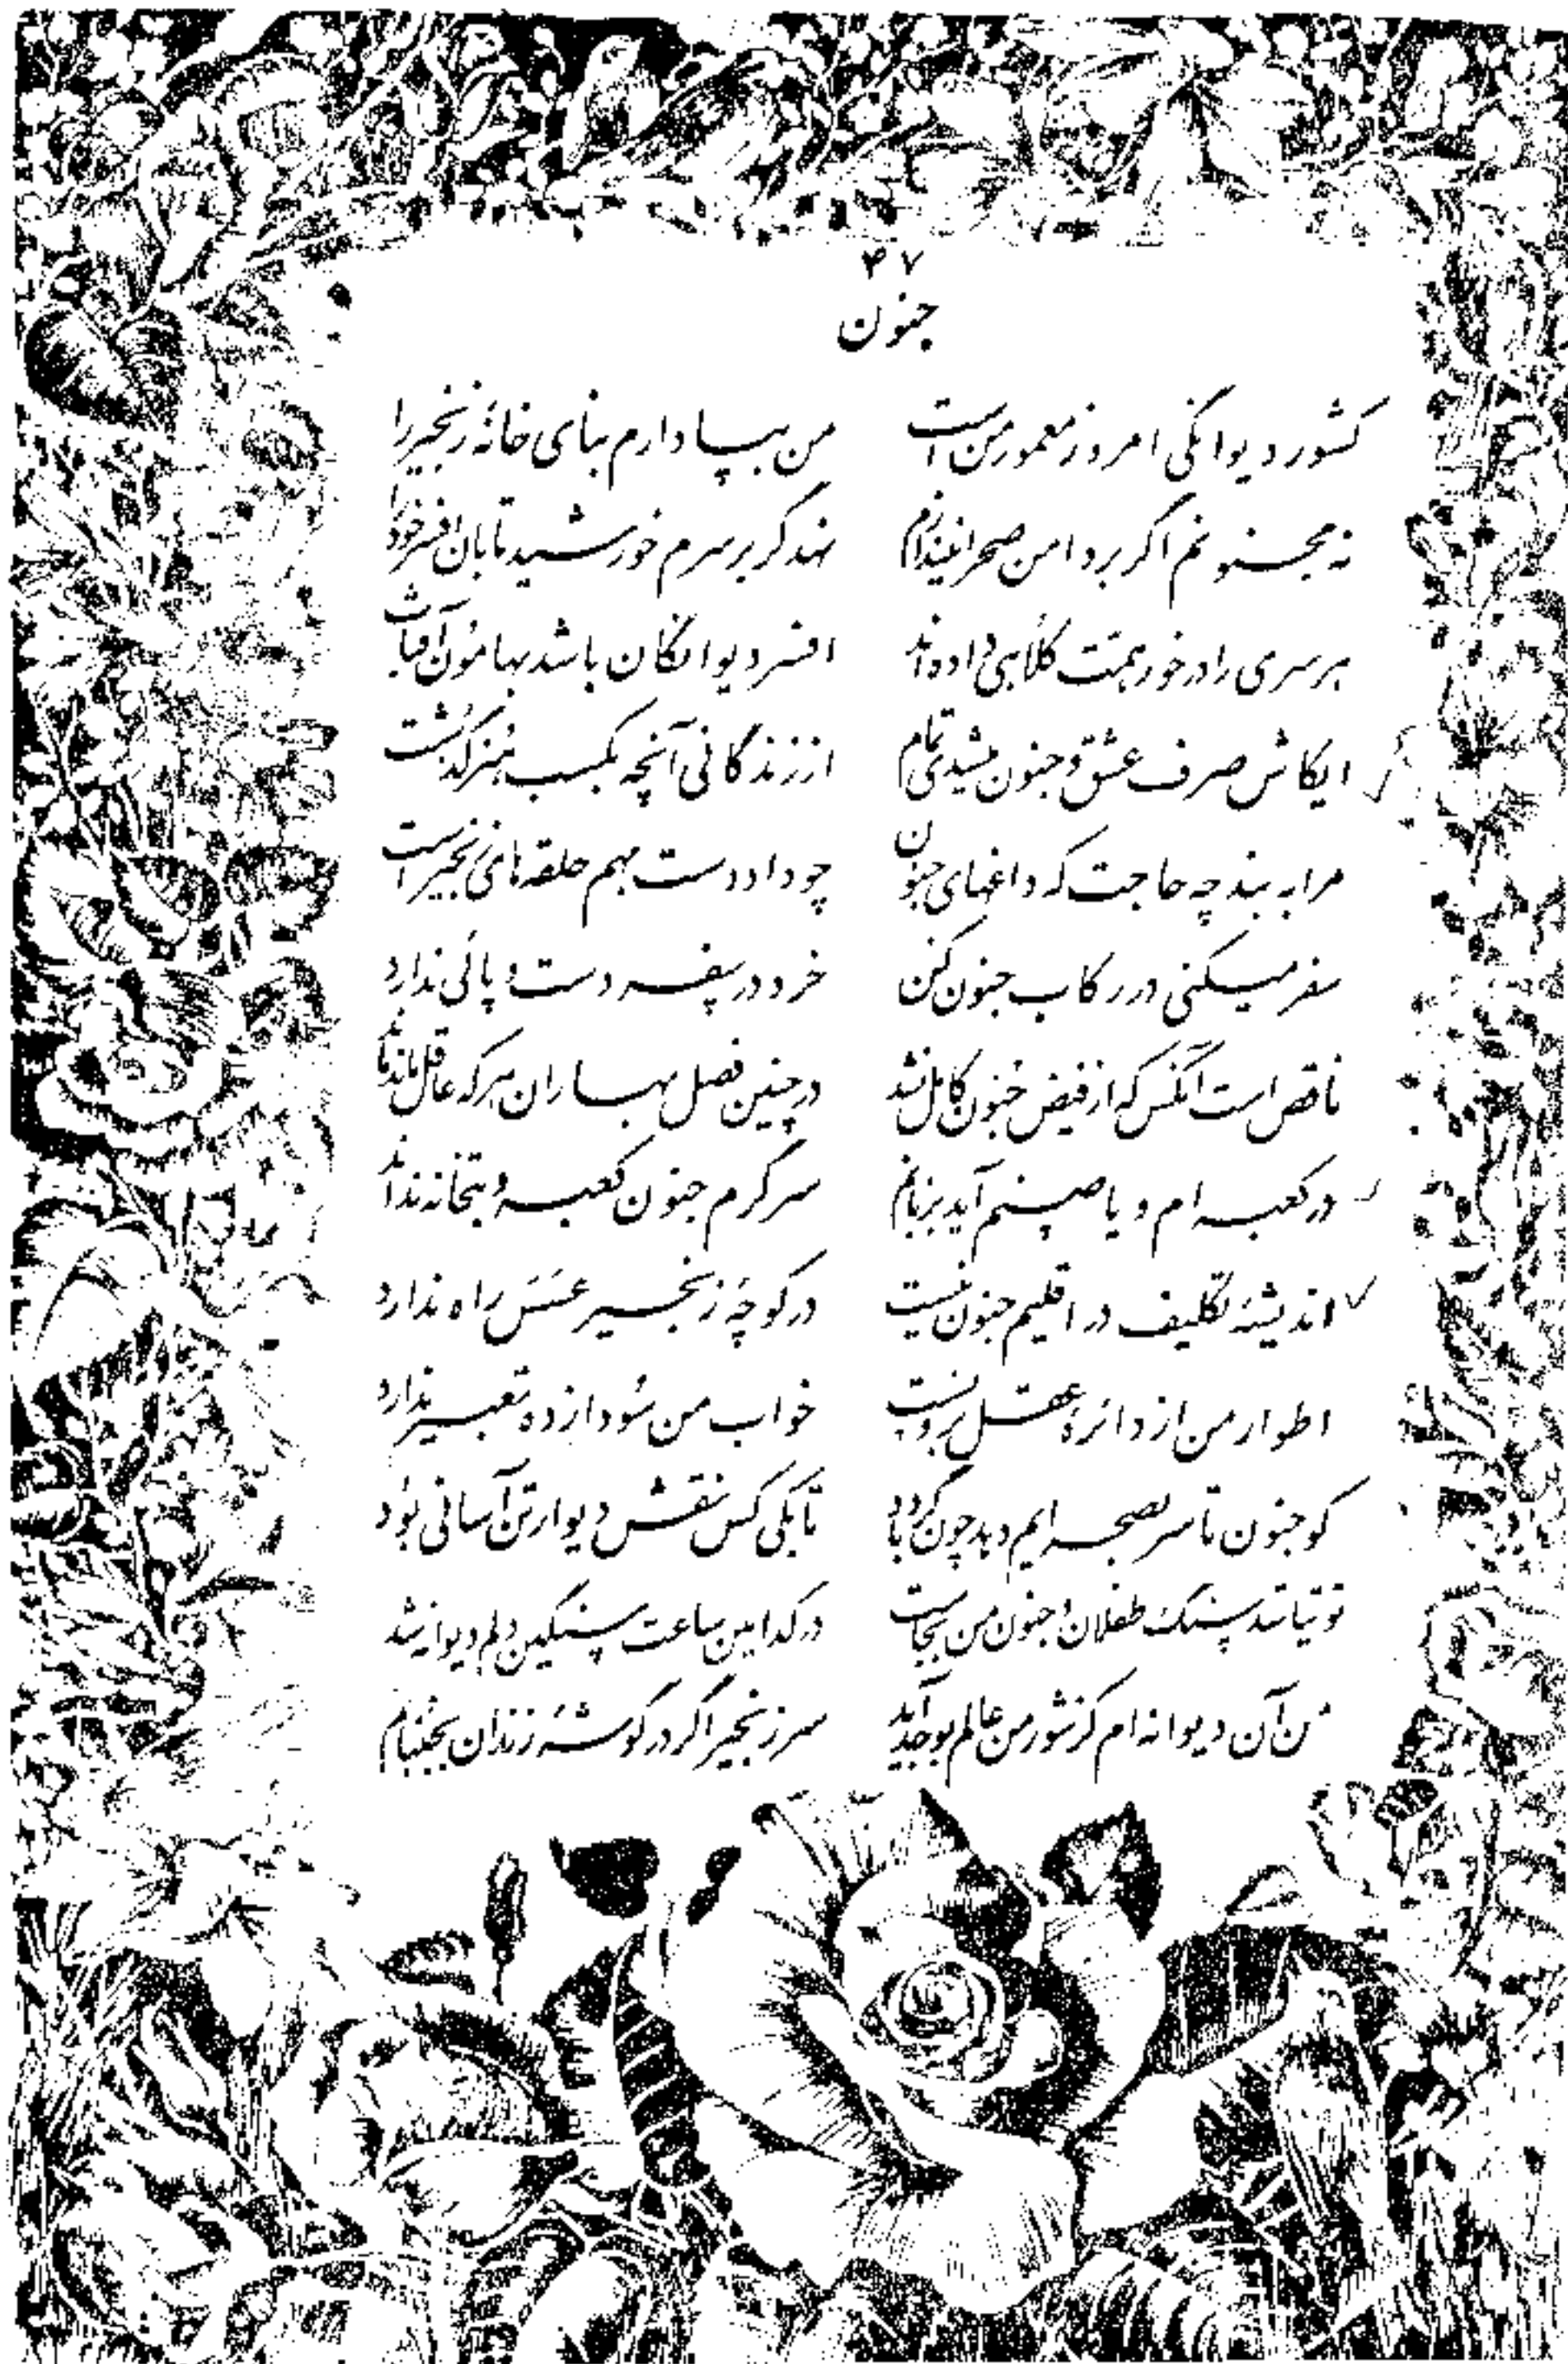 ۴۷
جنون
کشور دیوانگی امروز معمور من است من بپا دارم بنای خانهٔ زنجیر را
نه مجنونم اگر بر دامن صحرا نیندازم نهد گر بر سرم خورشید تابان افسر خود را
هر سری را در خور همت کلاهی داده اند افسر دیوانگان باشد بهامون آفتاب
ایکاش صرف عشق و جنون میشدی تمام از زندگانی آنچه بکسب هنر گذشت
مرا به بند چه حاجت که داغهای جنون چو داد دست بهم حلقه های زنجیر است
سفر میکنی در رکاب جنون کن خرد در سفر دست و پائی ندارد
ناقص است آنکس که از فیض جنون کامل نشد در چنین فصل بهاران هر که عاقل ماند ماند
در کعبه ام و یا صنم آید بزبانم سرگرم جنون کعبه و بتخانه نداند
اندیشهٔ تکلیف در اقلیم جنون نیست در کوچهٔ زنجیر عسس راه ندارد
اطوار من از دائرهٔ عقل برونست خواب من سودا زده تعبیر ندارد
کو جنون تا سر بصحرایم دهد چون گردباد تا بکی کس نقش دیوار تن آسانی بود
توتیا شد سنگ طفلان و جنون من بجاست در کدامین ساعت سنگین دلم دیوانه شد
من آن دیوانه ام کز شور من عالم بوجد آید سر زنجیر اگر در گوشهٔ زندان بجنبانم